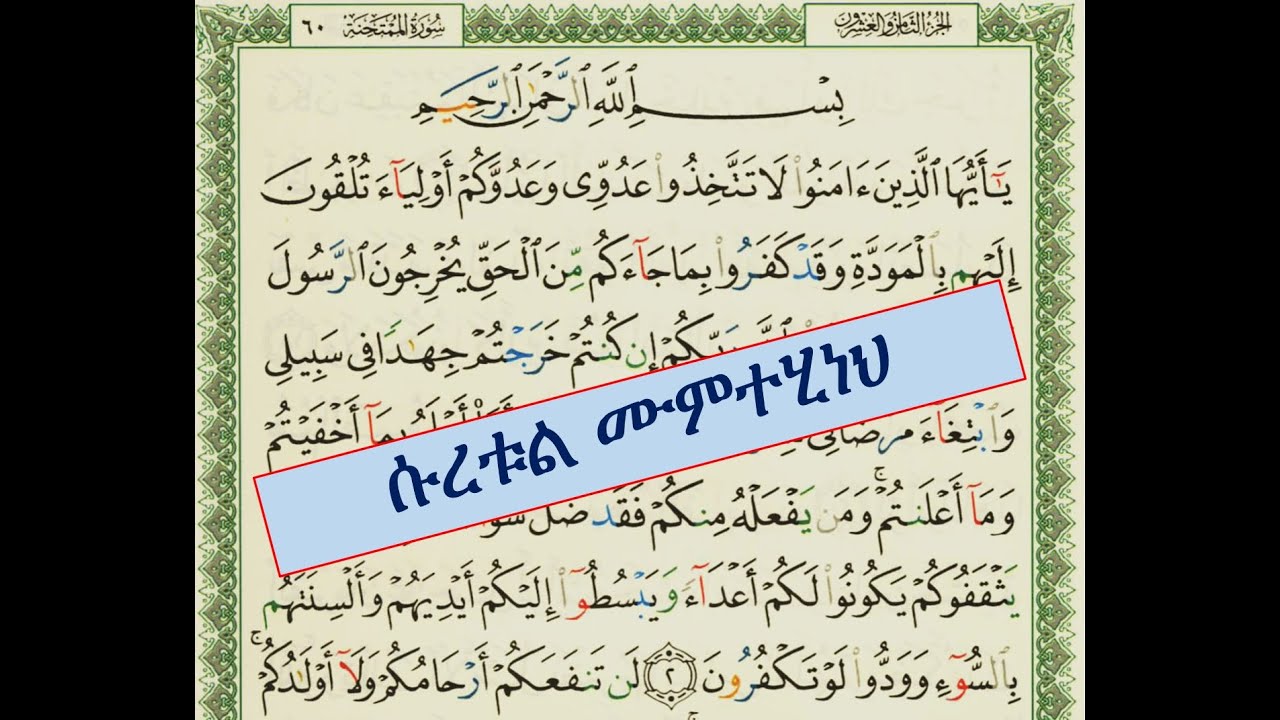 الجزء الثامن والعشرون
سورة الممتحنة ٦٠
بِسْمِ ٱللَّهِ ٱلرَّحْمَٰنِ ٱلرَّحِيمِ
يَٰٓأَيُّهَا ٱلَّذِينَ ءَامَنُوا۟ لَا تَتَّخِذُوا۟ عَدُوِّى وَعَدُوَّكُمْ أَوْلِيَآءَ تُلْقُونَ
إِلَيْهِم بِٱلْمَوَدَّةِ وَقَدْ كَفَرُوا۟ بِمَا جَآءَكُم مِّنَ ٱلْحَقِّ يُخْرِجُونَ ٱلرَّسُولَ
رَبِّكُمْ إِن كُنتُمْ خَرَجْتُمْ جِهَٰدًا فِى سَبِيلِى
وَٱبْتِغَآءَ مَرْضَاتِى بِمَآ أَخْفَيْتُمْ
ሱረቱል ሙምተሂነህ
وَمَآ أَعْلَنتُمْ ۚ وَمَن يَفْعَلْهُ مِنكُمْ فَقَدْ ضَلَّ
يَثْقَفُوكُمْ يَكُونُوا۟ لَكُمْ أَعْدَآءً وَيَبْسُطُوٓا۟ إِلَيْكُمْ أَيْدِيَهُمْ وَأَلْسِنَتَهُم
بِٱلسُّوٓءِ وَوَدُّوا۟ لَوْ تَكْفُرُونَ ٢ لَن تَنفَعَكُمْ أَرْحَامُكُمْ وَلَآ أَوْلَٰدُكُمْ ۚ